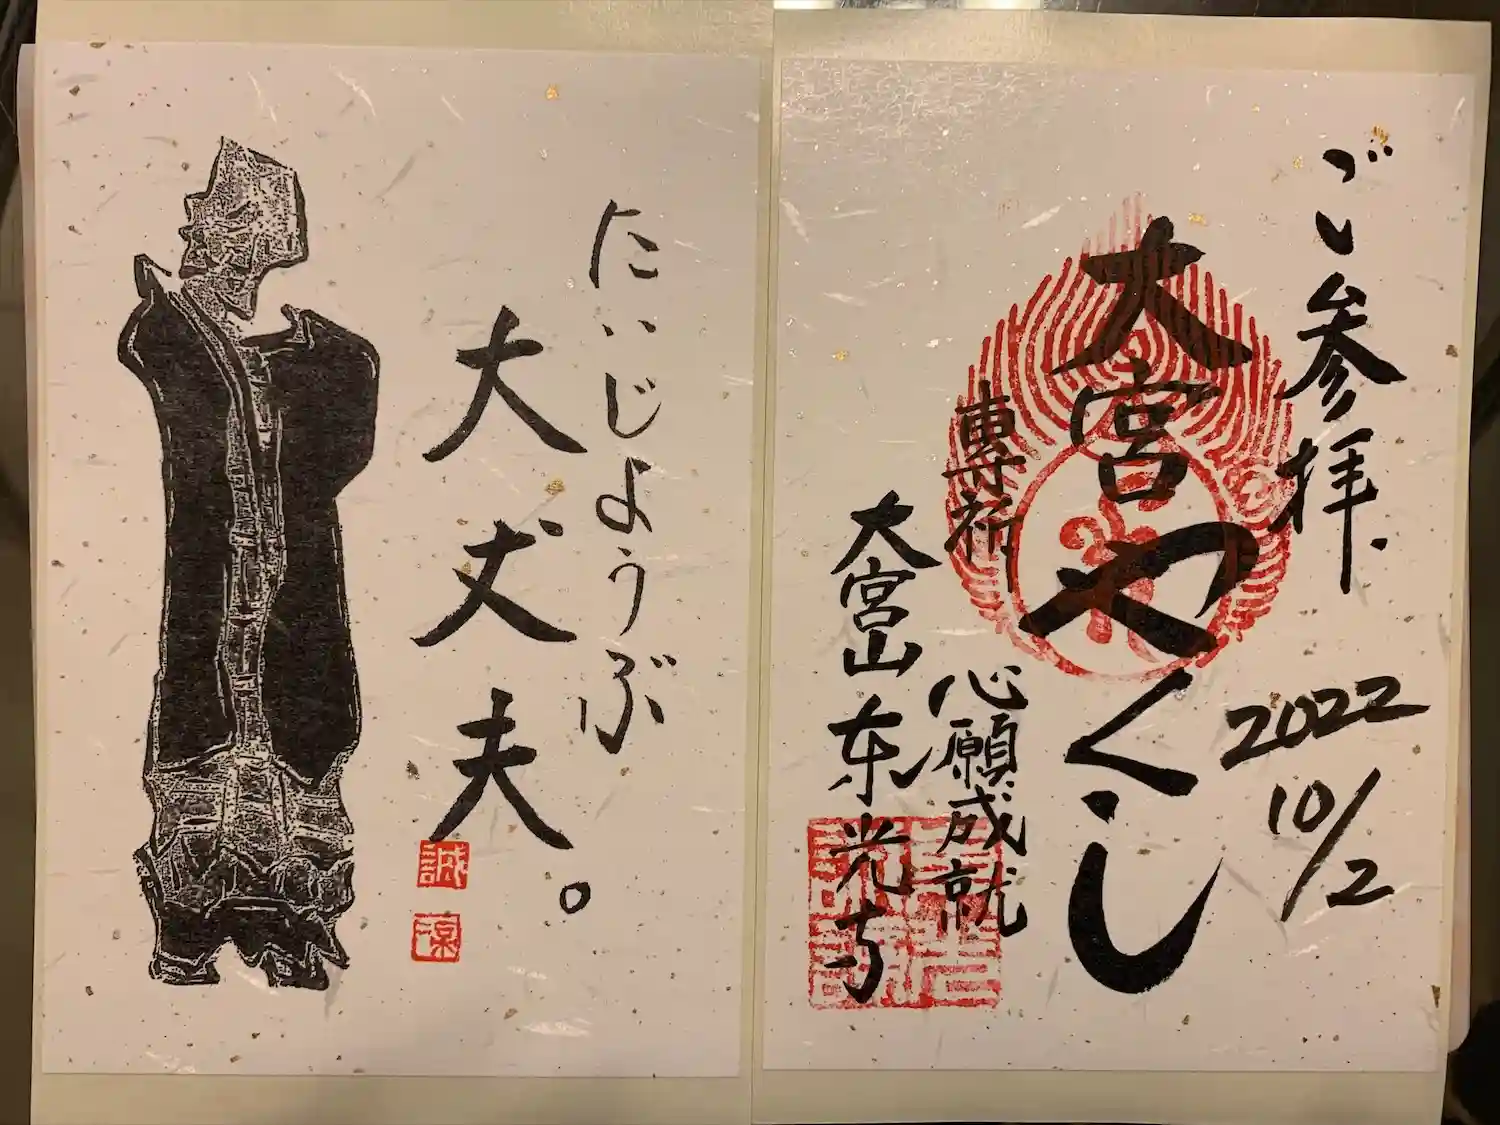 ご参拝、
2022
10/2
大宮やくし
專祈
心願成就
大宮山东光寺
だいじょうぶ
大丈夫。
誠
凜